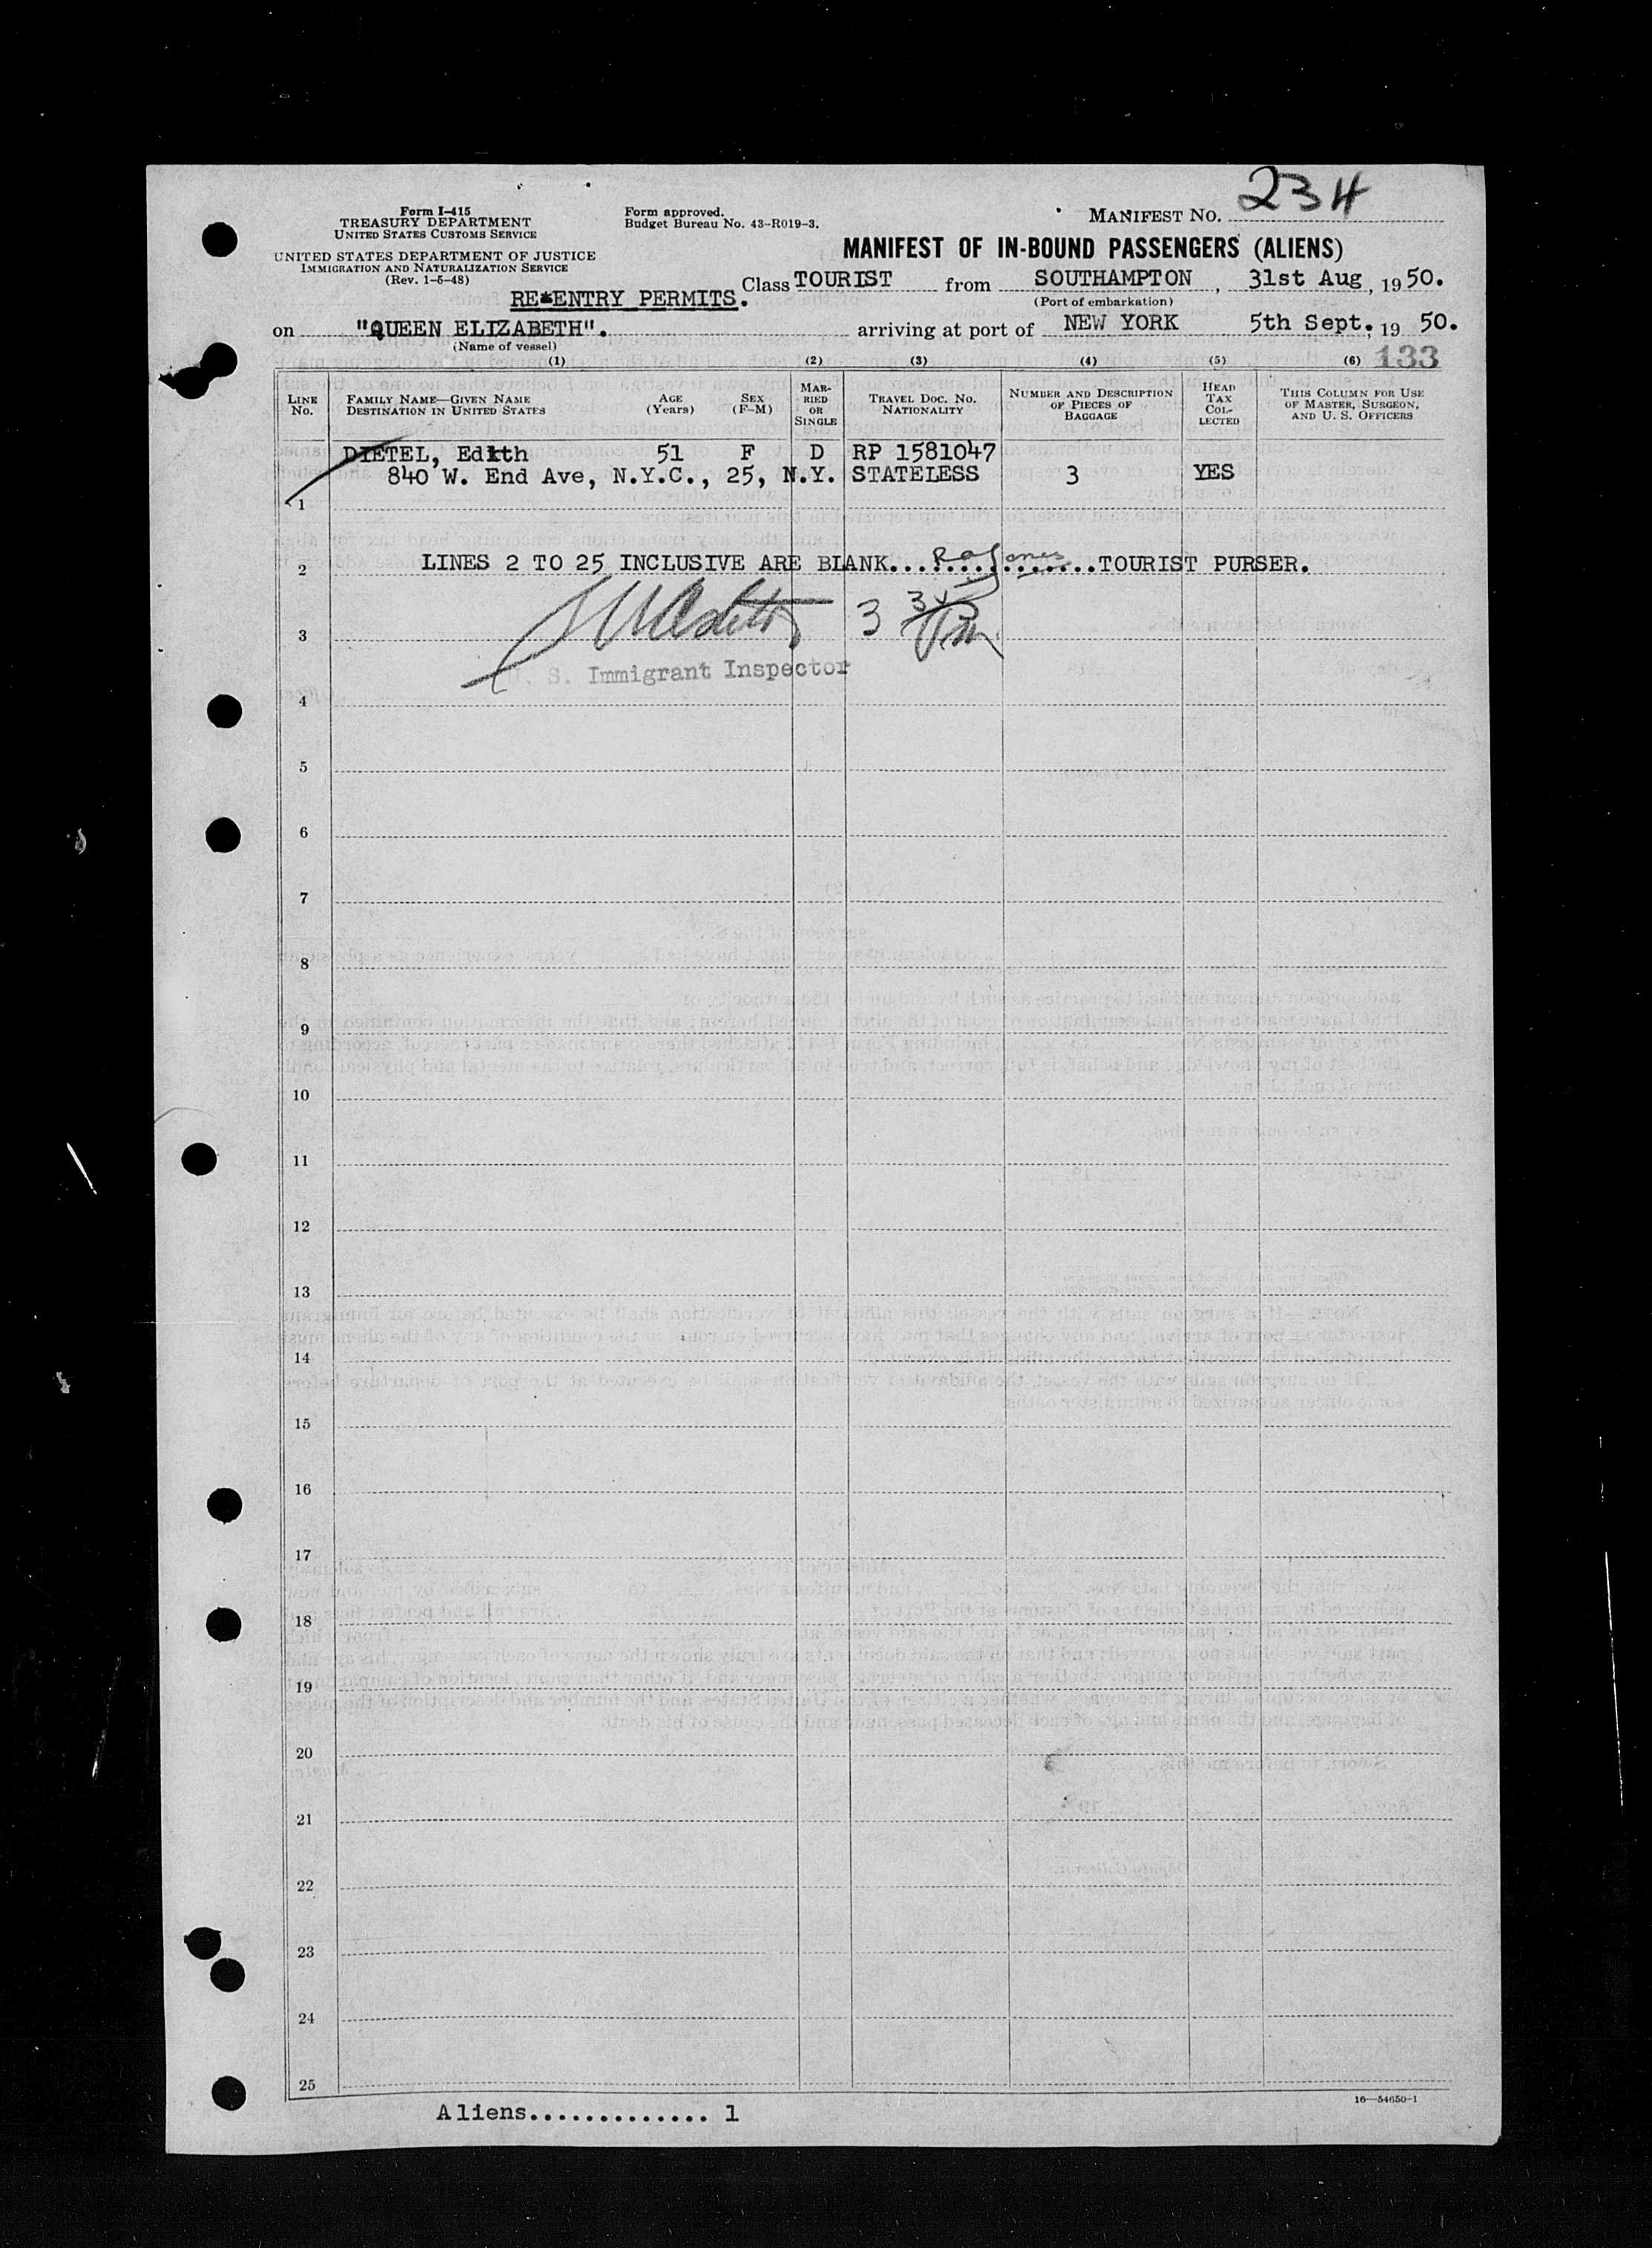 Form I-415
TREASURY DEPARTMENT
UNITED STATES CUSTOMS SERVICE
UNITED STATES DEPARTMENT OF JUSTICE
IMMIGRATION AND NATURALIZATION SERVICE
(Rev. 1-5-48)
Form approved.
Budget Bureau No. 43-R019-3.
MANIFEST NO. 234
MANIFEST OF IN-BOUND PASSENGERS (ALIENS)
Class TOURIST from SOUTHAMPTON, 31st Aug, 1950.
RE*ENTRY PERMITS. (Port of embarkation)
on "QUEEN ELIZABETH". arriving at port of NEW YORK 5th Sept. 19 50.
(Name of vessel)
(1) (2) (3) (4) (5) (6) 133
LINE No.
FAMILY NAME—GIVEN NAME
DESTINATION IN UNITED STATES
AGE (Years)
SEX (F-M)
MARRIED OR SINGLE
TRAVEL DOC. NO.
NATIONALITY
NUMBER AND DESCRIPTION OF PIECES OF BAGGAGE
HEAD TAX COLLECTED
THIS COLUMN FOR USE OF MASTER, SURGEON, AND U. S. OFFICERS
DIETEL, Edith 51 F D RP 1581047
840 W. End Ave, N.Y.C., 25, N.Y. STATELESS 3 YES
1
2 LINES 2 TO 25 INCLUSIVE ARE BLANK.................TOURIST PURSER.
3
U. S. Immigrant Inspector
4
5
6
7
8
9
10
11
12
13
14
15
16
17
18
19
20
21
22
23
24
25
16—54650-1
Aliens.............. 1